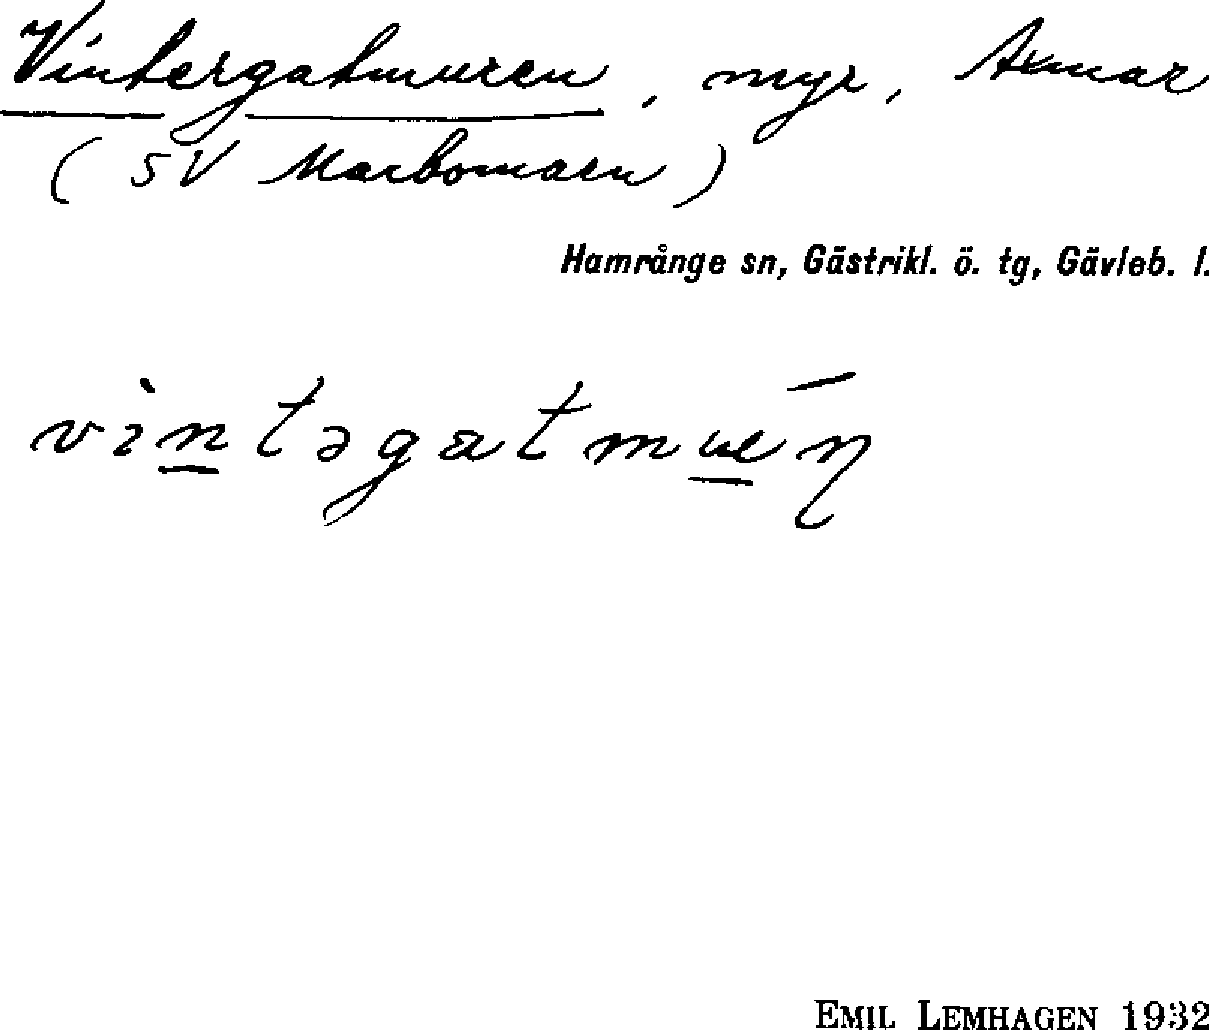 Vintergatmuren, myr, Axmar
(SV Marbomarn)
Hamrånge sn, Gästrikl. ö. tg, Gävleb. l.
EMIL LEMHAGEN 1932